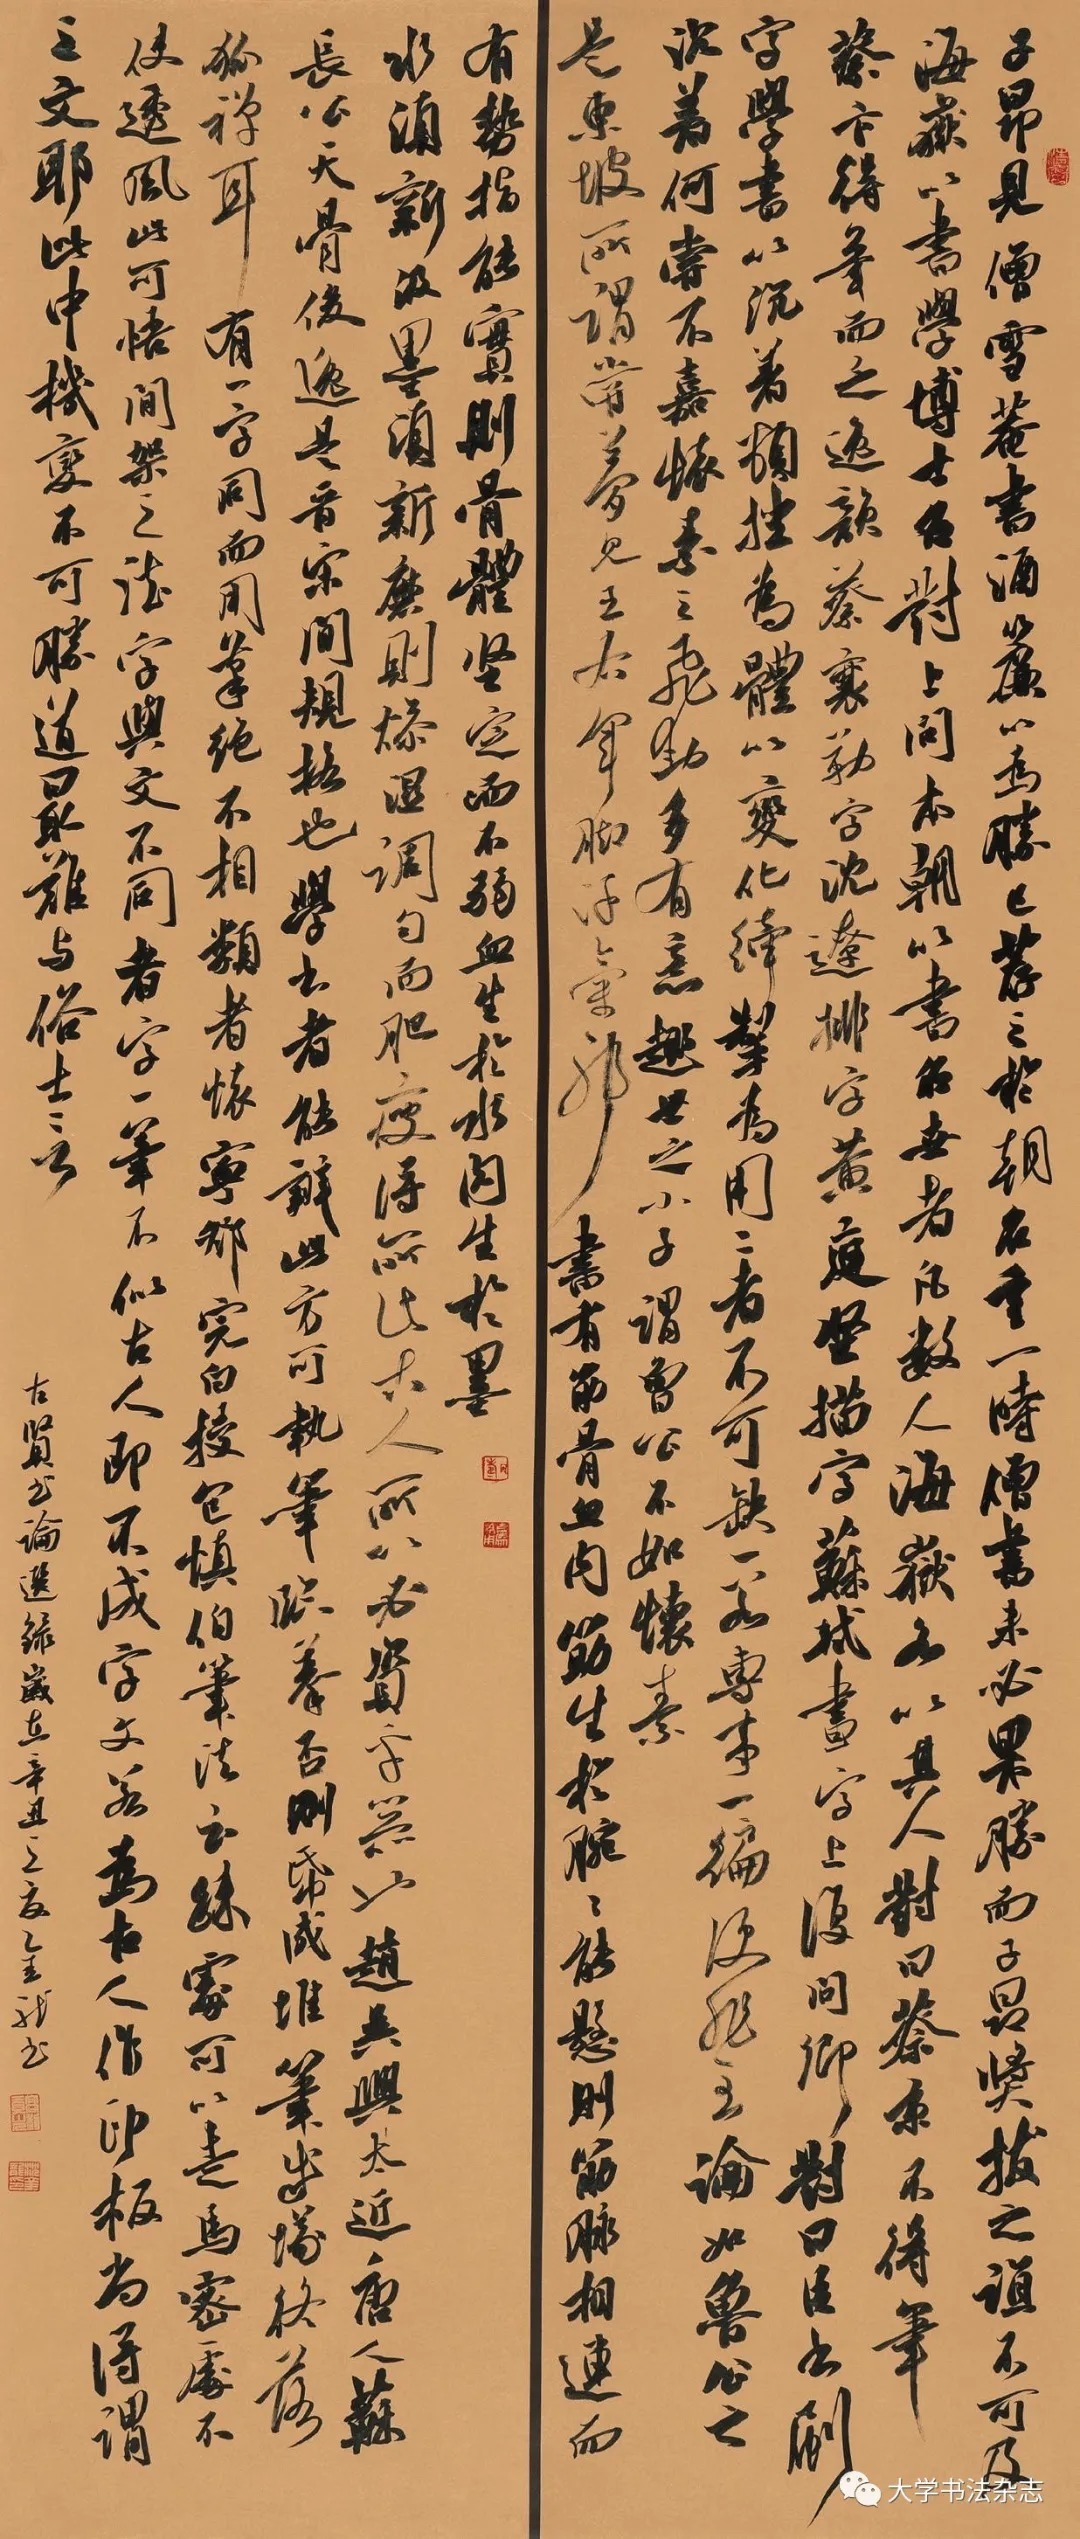 子昂見僧雪菴書酒帘以為勝己荐之於朝名重一時僧書未必果勝而子昂獎拔之誼不可及
海嶽以書學博士召對上問本朝以書名世者凡數人海嶽各以其人對曰蔡京不得筆
蔡卞得筆而乏逸韻蔡襄勒字沈遼排字黃庭坚描字蘇軾畫字上復問卿對曰臣書刷
字學書以沉着頓挫為體以變化牽掣為用二者不可缺一若專事一偏便非至論如魯公之
沉着何嘗不嘉懷素之飛動多有意趣世之小子謂魯公不如懷素
是東坡所謂嘗夢見王右軍脚汗氣耶 書有筋骨血肉筋生於腕腕能懸則筋脉相連而
有勢指能實則骨體坚定而不弱血生於水肉生於墨
水須新汲墨須新磨則燥濕調勻而肥瘦得所此古人所以必資乎器也趙吳興太近唐人蘇
長公天骨俊逸是晋宋間規格也學書者能辨此方可執筆臨摹否則帋成堆筆成塚終落
狐禪耳 有一字同而用筆絕不相類者懷寧鄧完白授包慎伯筆法云疎處可以走馬密處不
使透風此可悟間架之法字與文不同者字一筆不似古人即不成字文若為古人作印板尚得謂
之文耶此中機變不可勝道曰最難与俗士言
古賢書論選録歲在辛丑之夏金  书
大学书法杂志